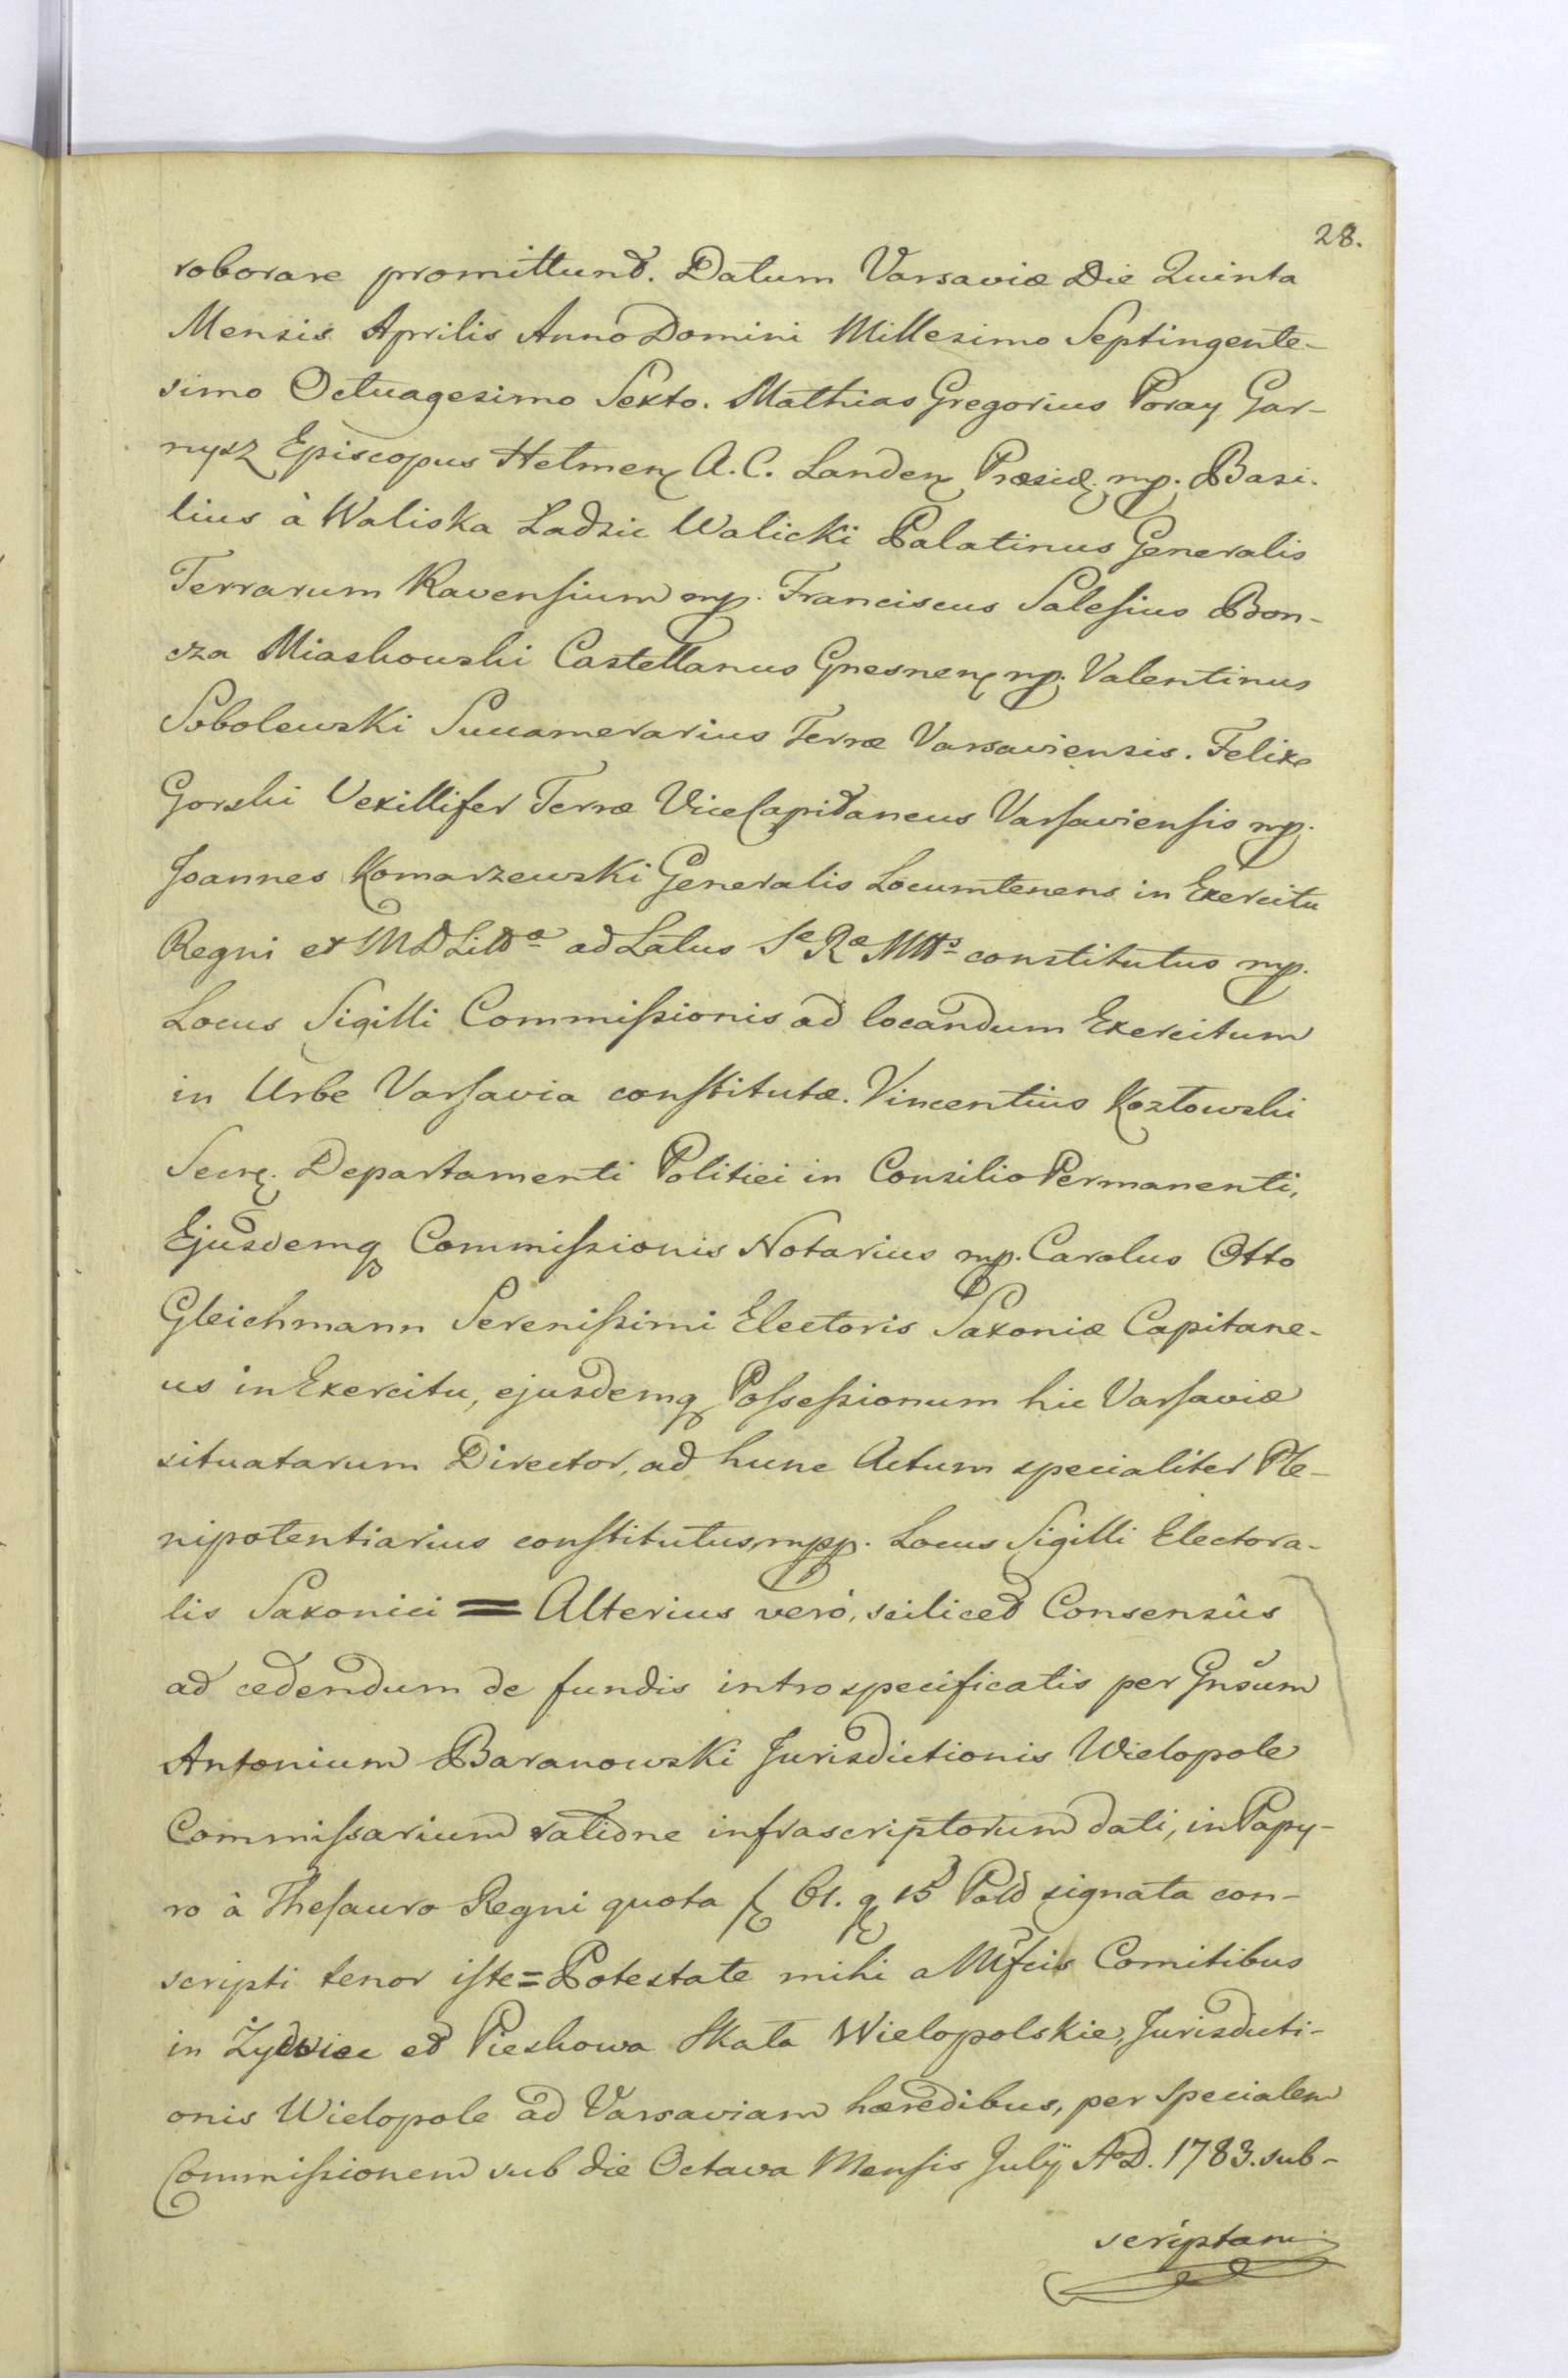 28.
roborare promittunt. Datum Varsaviæ Die Quinta
Mensis Aprilis Anno Domini Millesimo Septingente-
simo Octuagesimo Sexto. Mathias Gregorius Poray Gar-
nysz Episcopus Helmen A. C. Landen Præsid. mp. Basi-
lius à Waliska Ladzic Walicki Palatinus Generalis
Terrarum Ravensium mp. Franciscus Salesius Bon-
cza Miaskowski Castellanus Gnesnen mp. Valentinus
Sobolewski Succamerarius Terræ Varsaviensis. Felix
Gorski Vexillifer Terræ ViceCapitaneus Varsaviensis mp.
Joannes Komarzewski Generalis Locumtenens in Exercitu
Regni et MD Litt^a ad Latus S^æ R^æ Mtt^s constitutus mp.
Locus Sigilli Commissionis ad locandum Exercitum
in Urbe Varsavia constitutæ. Vincentius Kozłowski
Secr. Departamenti Politici in Consilio Permanenti,
Ejusdemq Commissionis Notarius mp. Carolus Otto
Gleichmann Serenissimi Electoris Saxoniæ Capitane-
us in Exercitu, ejusdemq Possessionum hic Varsaviæ
situatarum Director, ad hunc Actum specialiter Ple-
nipotentiarius constitutus mpp. Locus Sigilli Electora-
lis Saxonici = Alterius verò, scilicet Consensûs
ad cedendum de fundis introspecificatis per Gnsum
Antonium Baranowski Jurisdictionis Wielopole
Commissarium ratione infrascriptorum dati, in Papy-
ro à Thesauro Regni quota f 61. g 15 Pold signata con-
scripti tenor iste = Potestate mihi a Mfcis Comitibus
in Żydwiec et Pieskowa Skała Wielopolskie, Jurisdicti-
onis Wielopole ad Varsaviam hæredibus, per specialem
Commissionem sub die Octava Mensis July AD. 1783. sub-
scriptam